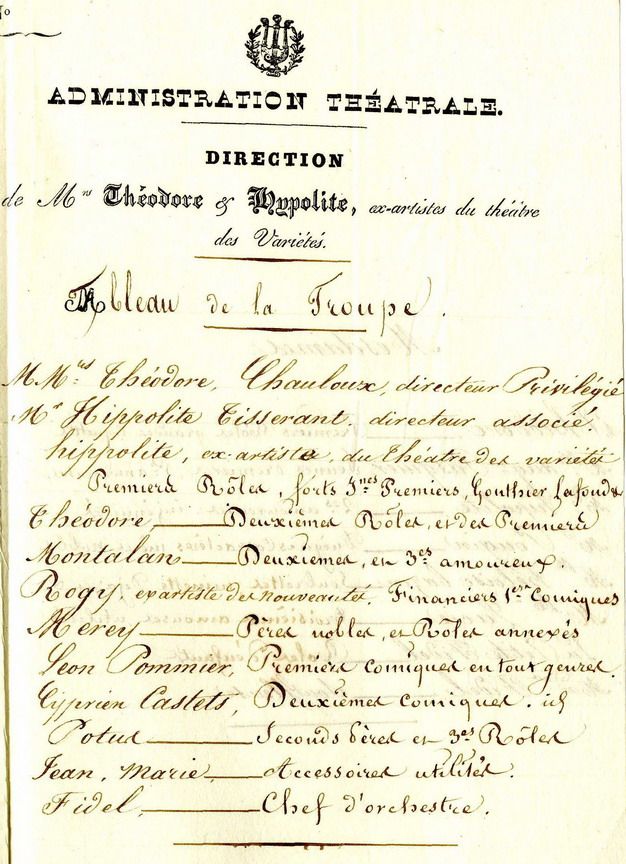 N°
ADMINISTRATION THÉATRALE.
DIRECTION
de Mrs Théodore & Hypolite, ex-artistes du théâtre
des Variétés.
Tableau de la Troupe.
MMrs Théodore, Chauloux, directeur Privilégié
Mr Hippolite Tisserant, directeur associé.
hippolite, ex-artiste, du théatre des variétés
Premiers Rôles, forts jnes Premiers, Gonthier Lafond &
Théodore — Deuxièmes Rôles, et des Premiers
Montalan — Deuxièmes, et 3es amoureux.
Rogy, ex artiste des nouveauté, Financiers 1ers Comiques
Merey — Pères nobles, et Rôles annexés
Leon Pommier, Premiers comiques en tout genres.
Cyprien Castets, Deuxièmes comiques. id
Potus — Seconds Pères et 3es Rôles
Jean, Marie — Accessoires utilités.
Fidel, — Chef d'orchestre.